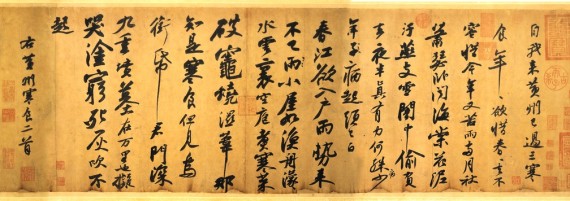 自我來黃州已過三寒
食年〻欲惜春〻去不
容惜今年又苦雨兩月秋
蕭瑟卧聞海棠花泥
汙燕支雪闇中偷負
去夜半真有力何殊少
年子病起須已白
春江欲入戶雨勢來
不已雨小屋如漁舟濛〻
水雲裏空庖煮寒菜
破竈燒濕葦那
知是寒食但見烏
銜帋君門深
九重墳墓在万里也擬
哭塗窮死灰吹不
起
右黃州寒食二首